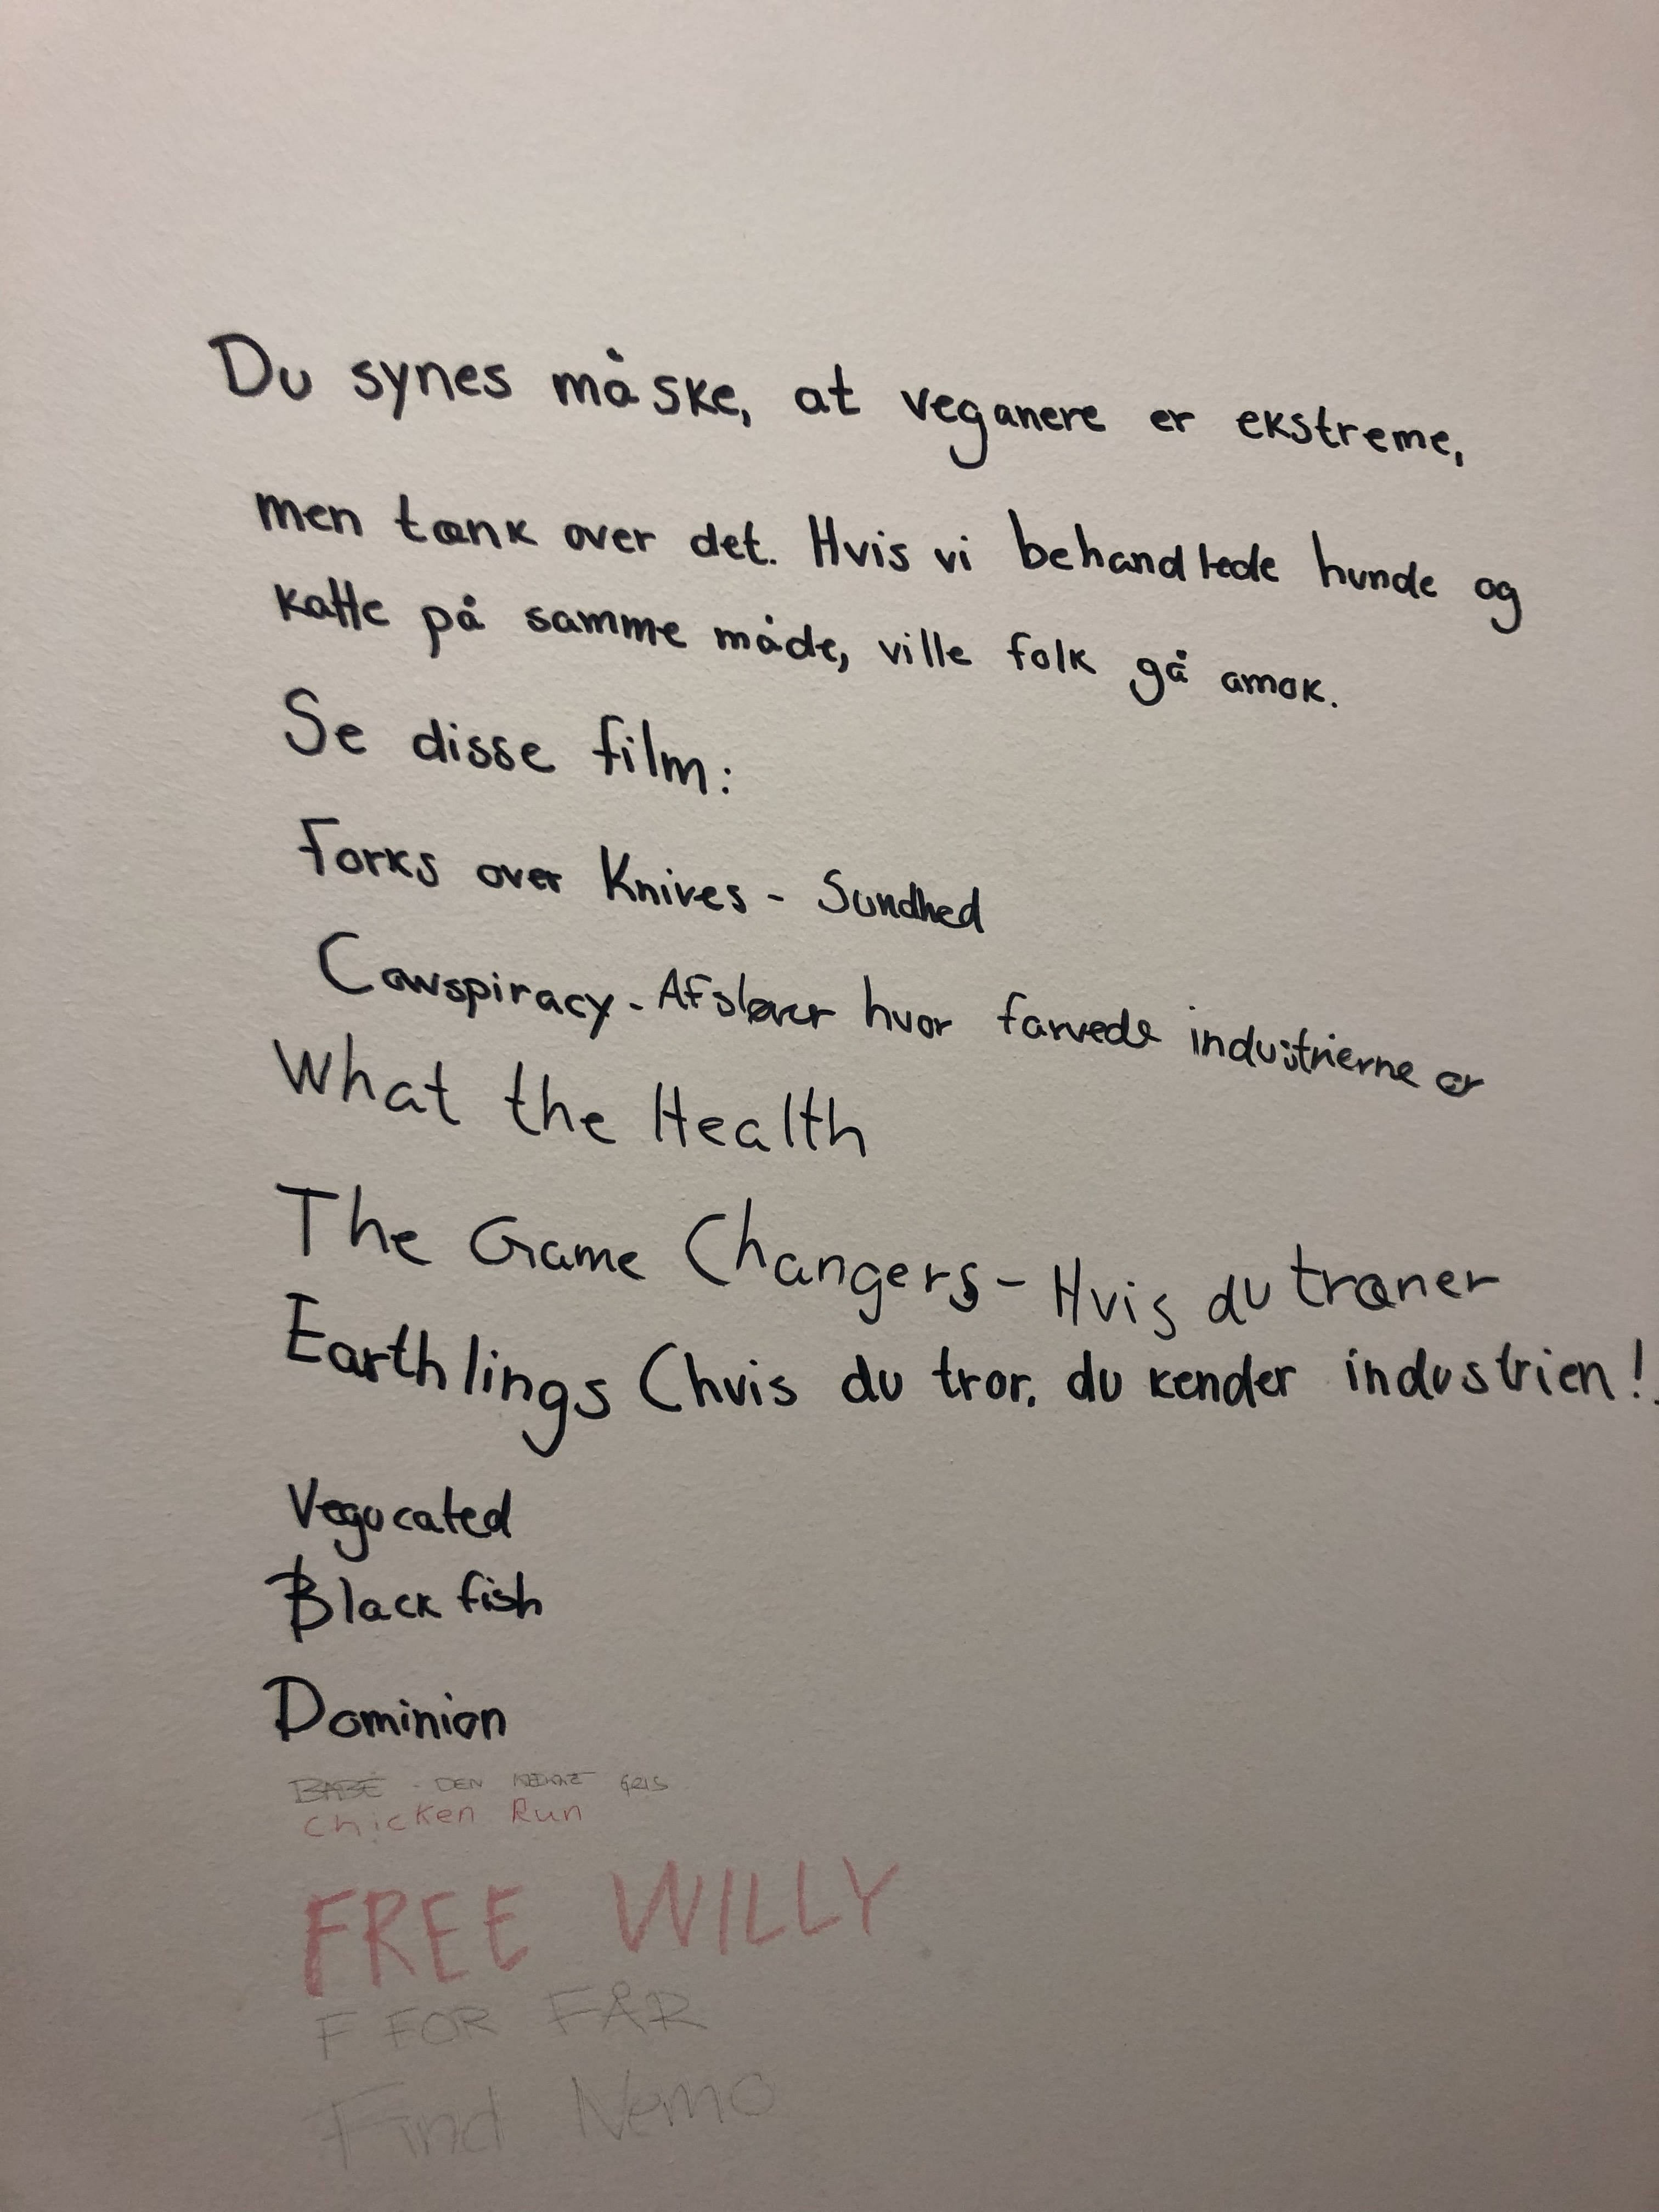 Du synes måske, at veganere er ekstreme,
men tænk over det. Hvis vi behandlede hunde og
katte på samme måde, ville folk gå amok.
Se disse film:
Forks over Knives - Sundhed
Cowspiracy - Afslører hvor farvede industrierne er
What the Health
The Game Changers - Hvis du træner
Earthlings (hvis du tror, du kender industrien!
Vegucated
Blackfish
Dominion
BABE - DEN KÆKKE GRIS
Chicken Run
FREE WILLY
F FOR FÅR
Find Nemo